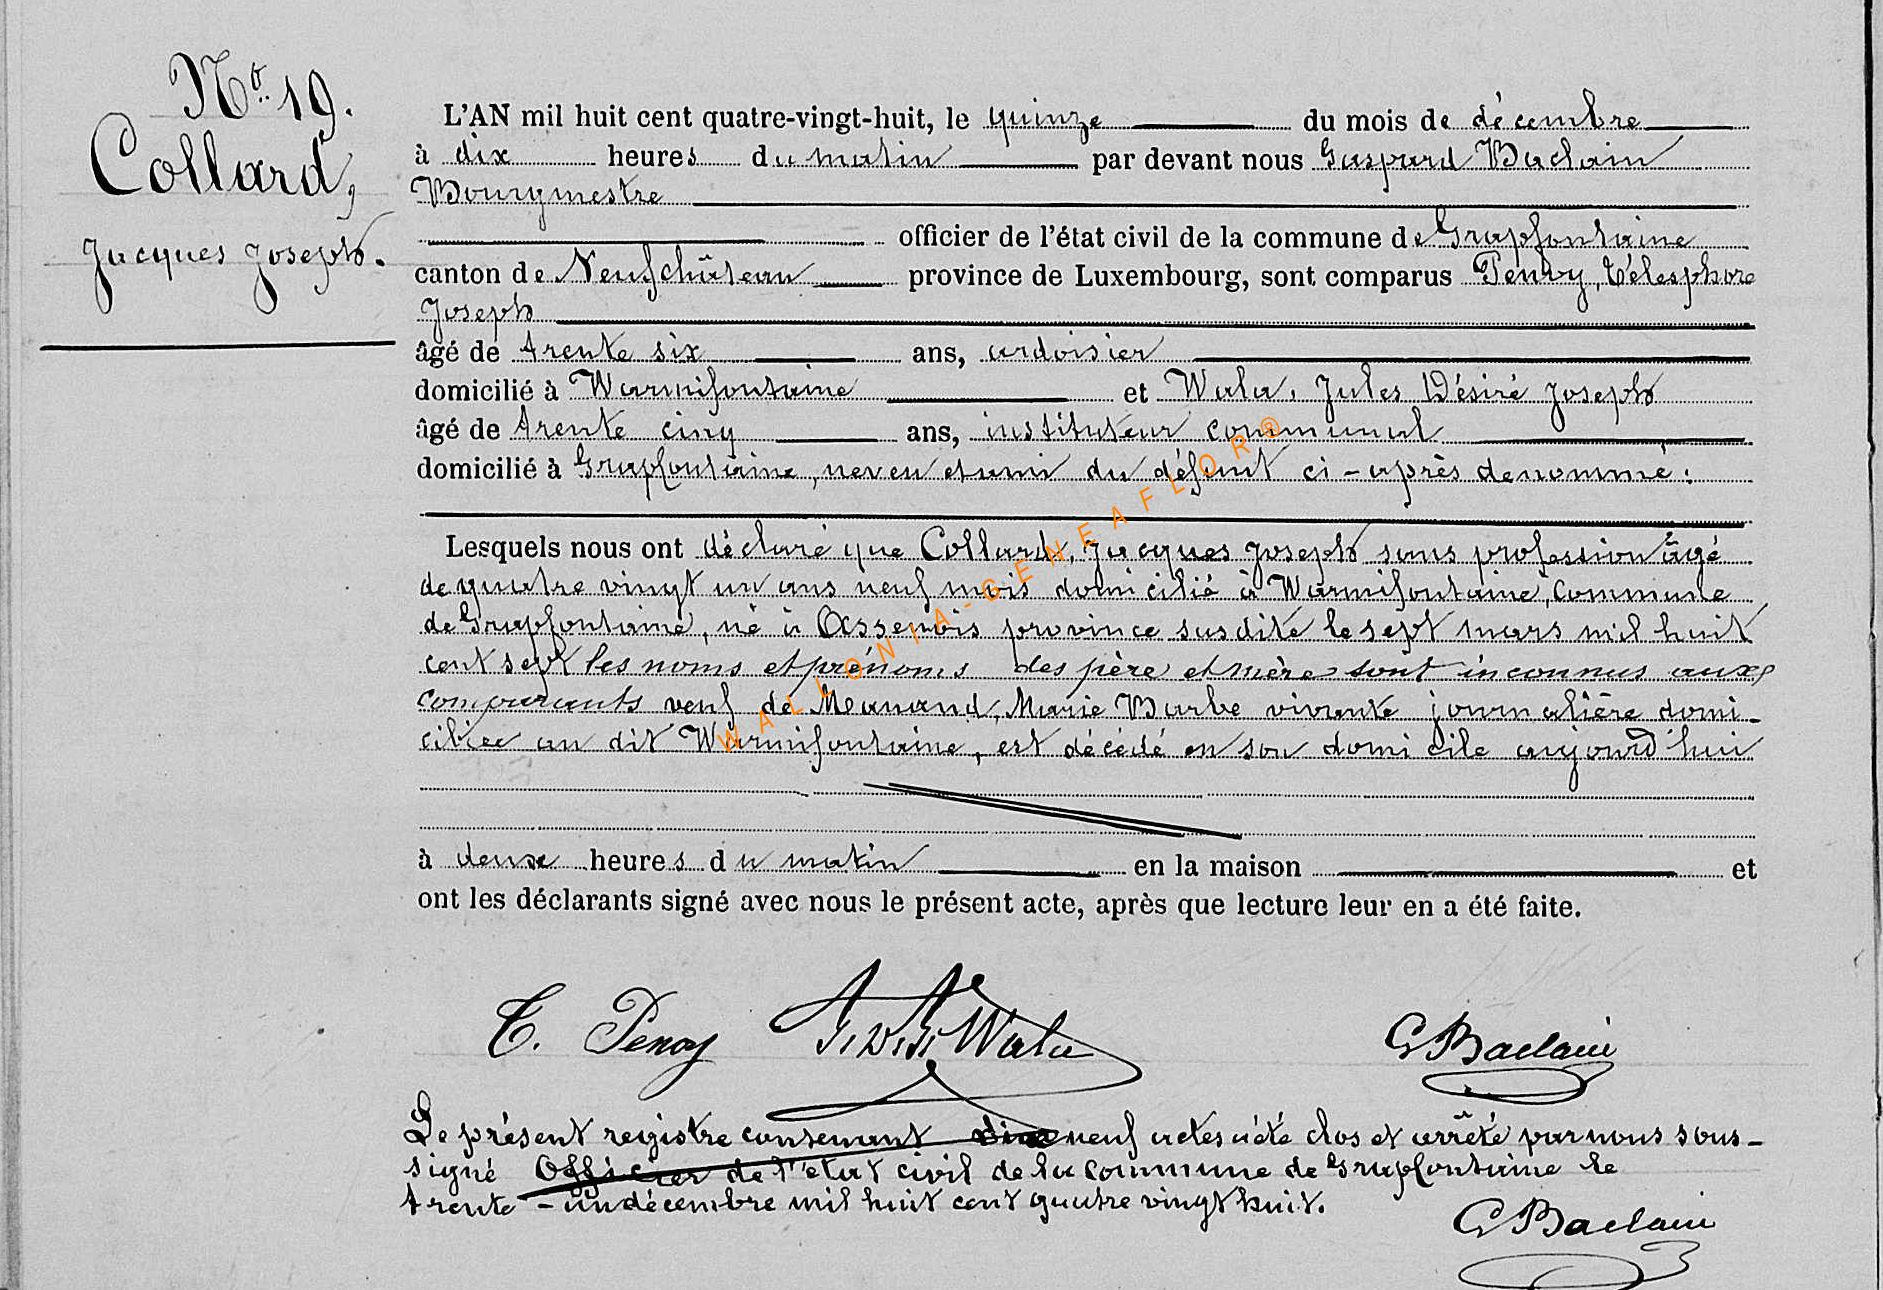 No. 19.
Collard,
Jacques Joseph.
L'AN mil huit cent quatre-vingt-huit, le quinze du mois de décembre
à dix heures du matin par devant nous Gaspard Baclain
Bourgmestre
officier de l'état civil de la commune de Grapfontaine
canton de Neufchâteau province de Luxembourg, sont comparus Penoy, Télesphore
Joseph
âgé de trente six ans, ardoisier
domicilié à Warmifontaine et Wala, Jules Désiré Joseph
âgé de trente cinq ans, instituteur communal
domicilié à Grapfontaine, neveu et ami du défunt ci-après dénommé:
Lesquels nous ont déclaré que Collard, Jacques Joseph sans profession âgé
de quatre vingt un ans neuf mois domicilié à Warmifontaine, Commune
de Grapfontaine, né à Assenois province susdite le sept mars mil huit
cent sept les noms et prénoms des père et mère sont inconnus aux
comparants veuf de Manand, Marie Barbe vivante journalière domi-
ciliée au dit Warmifontaine, est décédé en son domicile aujourd'hui
à deux heures du matin en la maison et
ont les déclarants signé avec nous le présent acte, après que lecture leur en a été faite.
T. Penoy J. D. J. Wala G Baclain
Le présent registre contenant dix neuf actes a été clos et arrêté par nous sous-
signé Officier de l'état civil de la Commune de Grapfontaine le
trente-un décembre mil huit cent quatre vingt huit.
G Baclain
WALLONIA-GENEAFLOR®